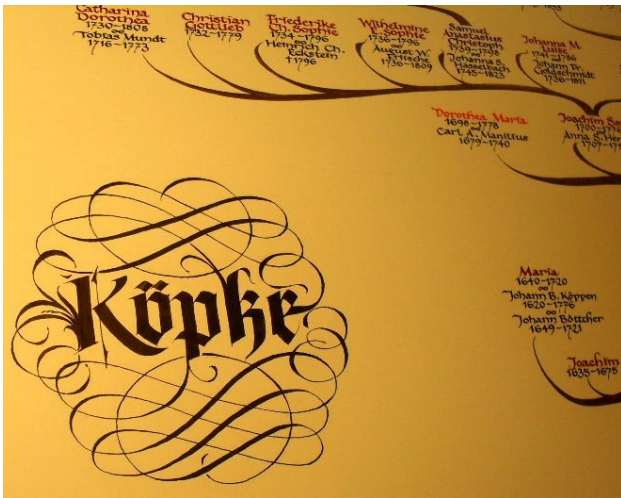 Catharina
Dorothea
1730-1808
∞
Tobias Mundt
1716-1773
Christian
Gottlieb
1732-1779
Friederike
Ch. Sophie
1734-1796
∞
Heinrich Ch.
Eckstein
†1796
Wilhelmine
C. Sophie
1736-1796
∞
August W.
Fritsche
1736-1809
Samuel
Anastasius
Christoph
1739-1798
∞
Johanna S.
Hasselbach
1745-1823
Johanna M.
1741-1786
∞
Johann Fr.
Goldschmidt
1736-1811
Dorothea Maria
1698-1778
∞
Carl A. Manitius
1679-1740
Joachim
Anna S.
Maria
1640-1720
∞
Johann B. Köppen
1620-1776
∞
Johann Böttcher
1649-1721
Joachim
1635-1678
Köpke